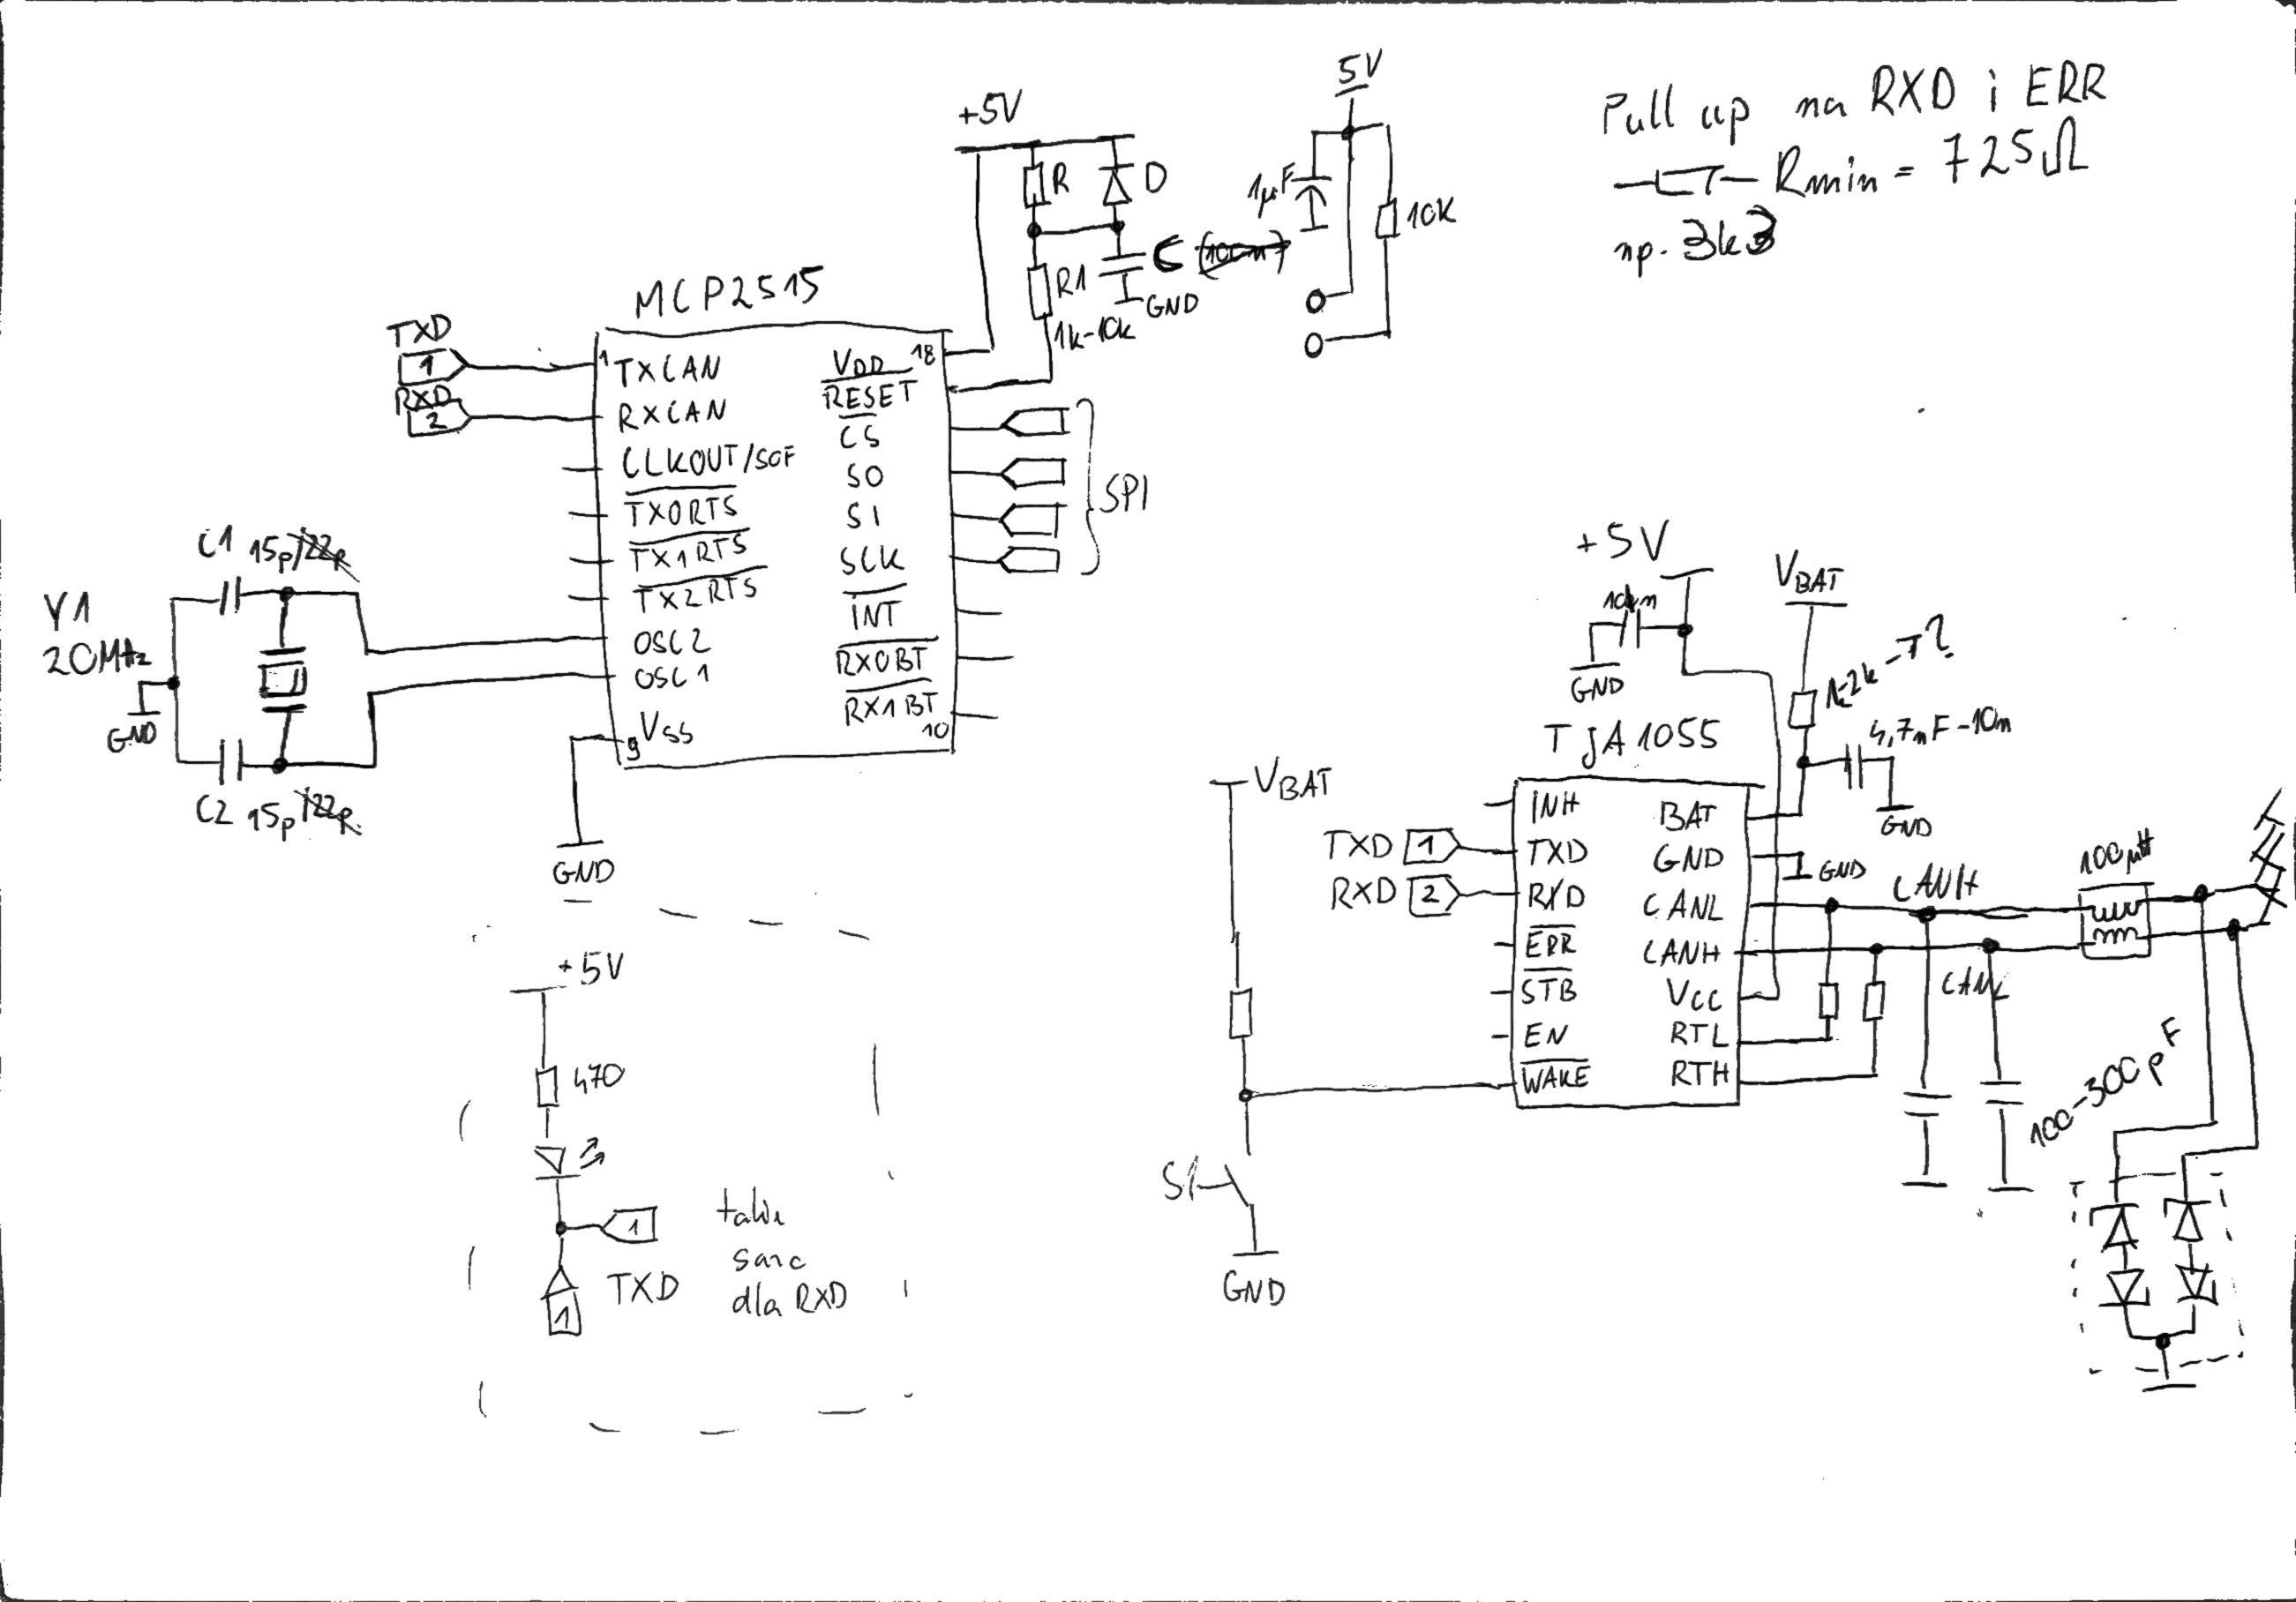 Pull up na RXD i ERR
Rmin = 725Ω
np. 3k3
5V
1µF
10K
+5V
R
D
C
R1
GND
1k-10k
MCP2515
TXD
1
RXD
2
1
TXCAN
RXCAN
CLKOUT/SOF
TX0RTS
TX1RTS
TX2RTS
OSC2
OSC1
VSS
9
VDD
18
RESET
CS
SO
SI
SCK
INT
RX0BT
RX1BT
10
SPI
C1 15p/22p
Y1
20MHz
GND
C2 15p/22p
GND
+5V
470
1
TXD
1
takie
dla RXD
+5V
GND
VBAT
4,7nF-10n
GND
TJA1055
VBAT
TXD 1
RXD 2
INH
TXD
RXD
ERR
STB
EN
WAKE
BAT
GND
CANL
CANH
VCC
RTL
RTH
GND
CANH
100µH
CANL
100-300pF
GND